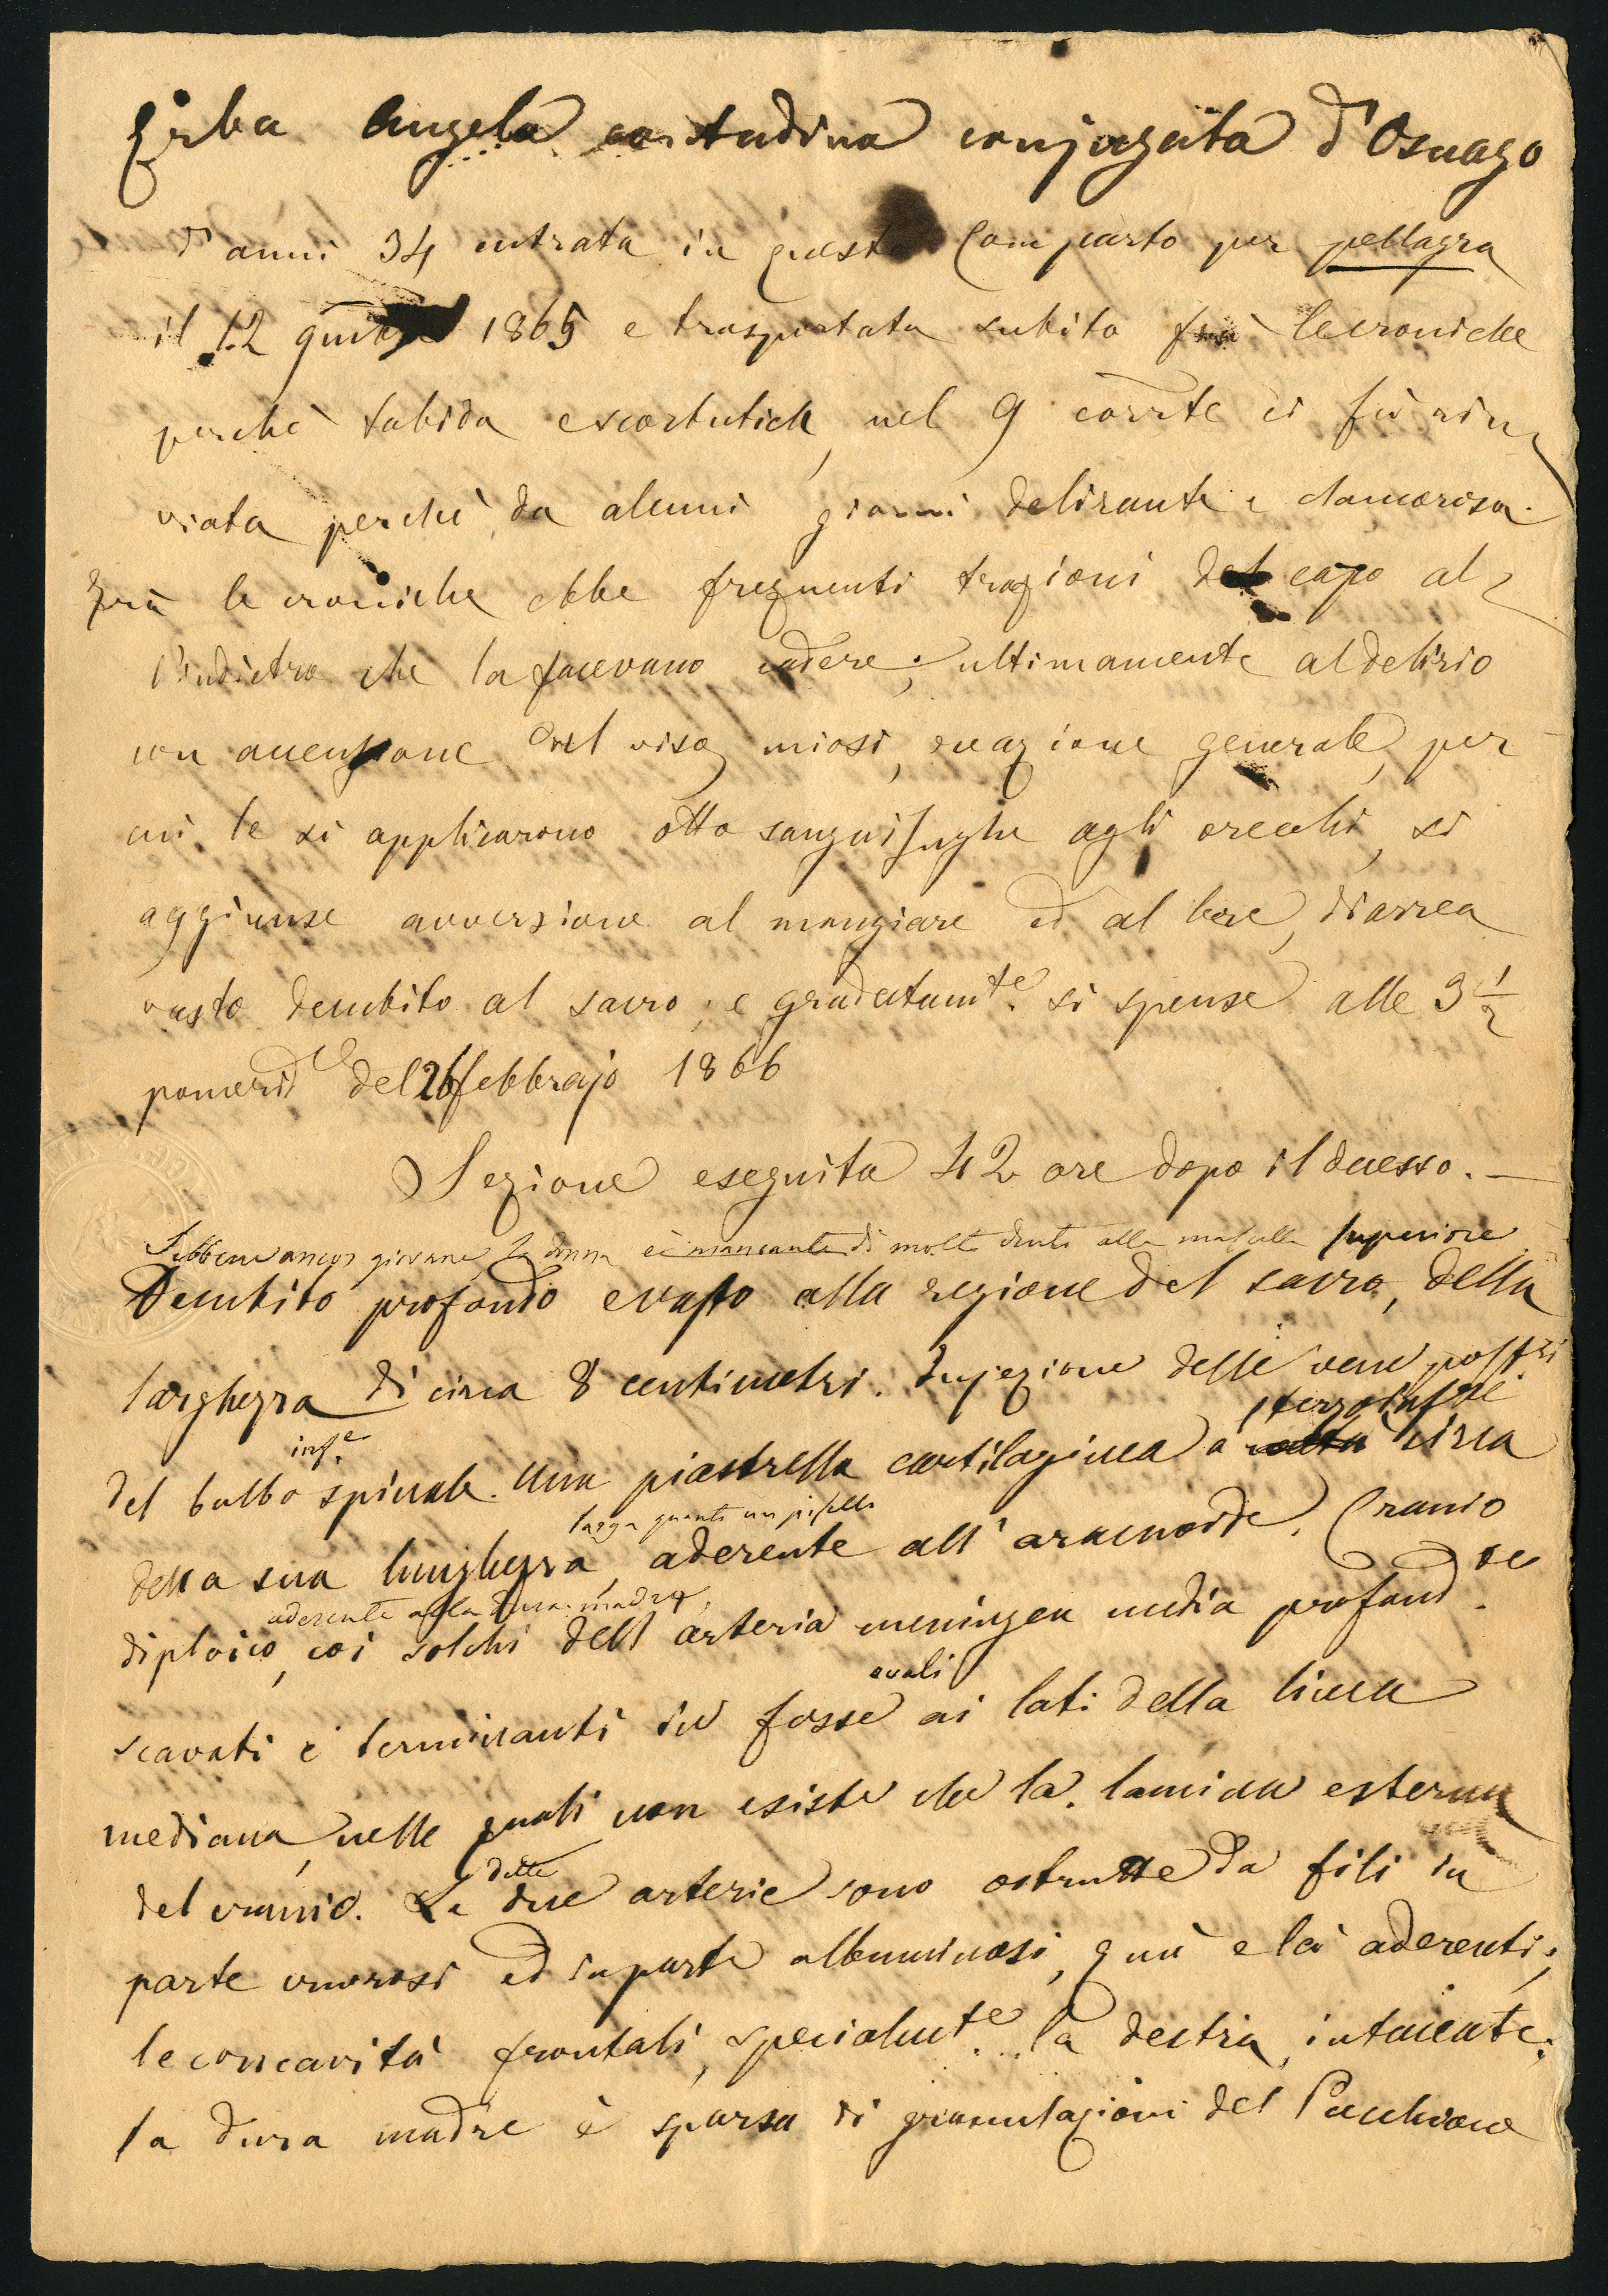 Erba Angela contadina conjugata d'Osnago
d'anni 34 entrata in questo Comparto per pellagra
il 12 1865 e trasportata subito frà le croniche
perchè tabida e scorbutica, nel 9 corrte ci fù rin
viata perchè da alcuni giorni delirante e clamorosa.
Frà le croniche ebbe frequenti trazioni del capo al
l'indietro che la facevano cadere; ultimamente al delirio
con accensione del viso, miosi, reazione generale, per
cui le si applicarono otto sanguisughe agli orecchi, si
aggiunse avversione al mangiare ed al bere, diarrea
vasto decubito al sacro, e gradatamte si spense alle 3 1/2
pomeride del 26 febbrajo 1866
Sezione eseguita 42 ore dopo il decesso. —
Sebbene ancor giovane la donna è mancante di molti denti alla mascella superiore
Decubito profondo e vasto alla regione del sacro, della
larghezza di circa 8 centimetri. Injezione delle vene posteri
del bulbo spinale. Una piastrella cartilaginea a circa
infe
della sua lunghezza, aderente all'aracnoide. Cranio
larga quanto un pisello
diploico, coi solchi dell'arteria meningea media profondte
aderente alla dura madre,
scavati e terminanti in fosse ai lati della linea
ovali
mediana, nelle quali non esiste che la lamina esterna
del cranio. Le due arterie sono ostrutte da fili in
dette
parte cruorosi ed in parte albuminosi, quà e là aderenti;
le concavità frontali, specialmte la destra, intaccate;
la dura madre è sparsa di granulazioni del Pacchione